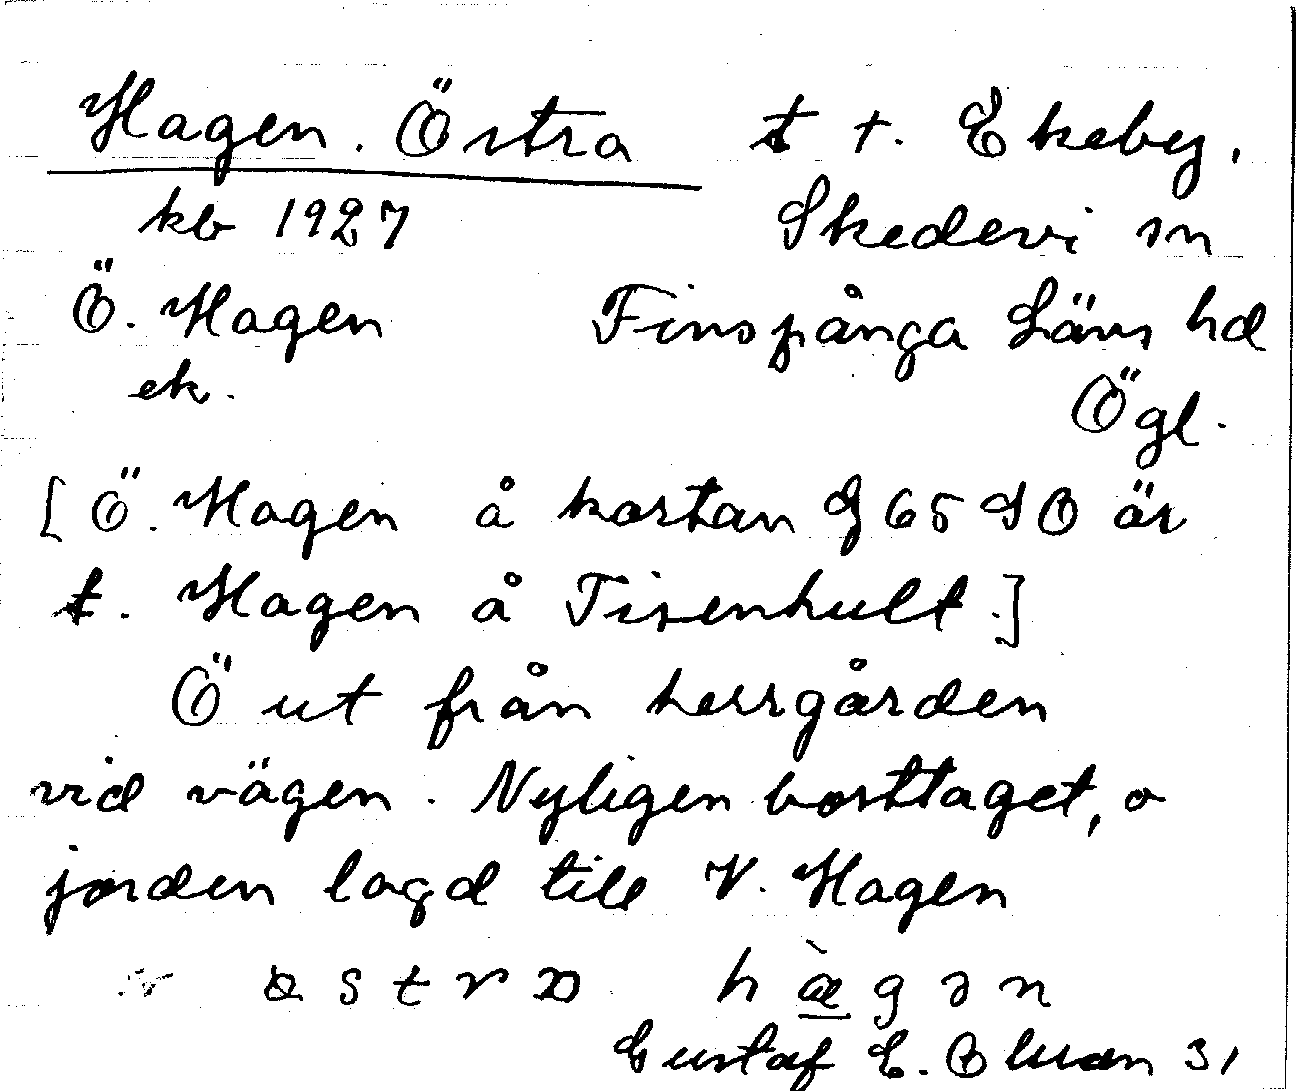 Hagen. Östra t t. Ekeby.
kb 1927 Skedevi sn
Ö. Hagen Finspånga Läns hd
ek. Ögl.
[Ö. Hagen å kartan G 65 SO är
t. Hagen å Tisenhult.]
Ö ut från herrgården
vid vägen. Nyligen borttaget, o
jorden lagd till V. Hagen
Gustaf E. Olsson 31